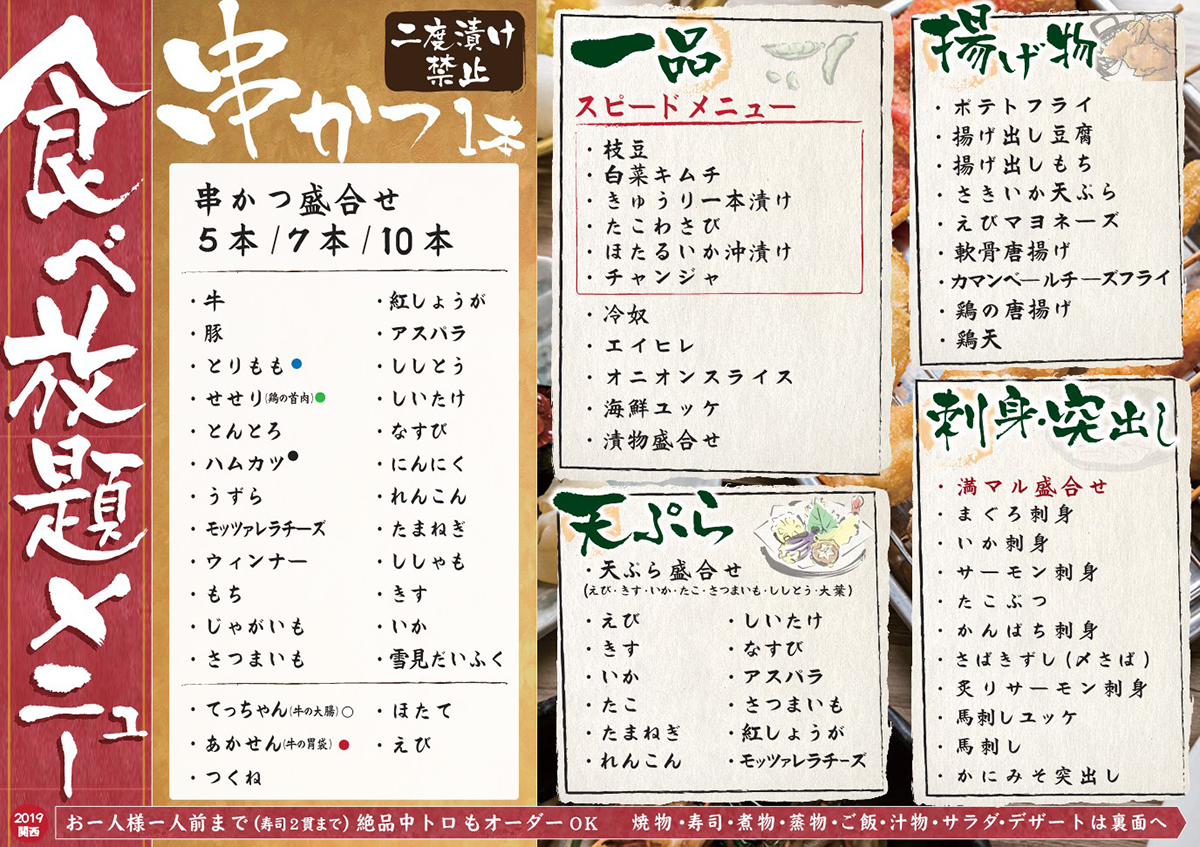 食べ放題メニュー
串かつ1本
二度漬け
禁止
串かつ盛合せ
5本/7本/10本
・牛
・豚
・とりもも
・せせり(鶏の首肉)
・とんとろ
・ハムカツ
・うずら
・モッツァレラチーズ
・ウィンナー
・もち
・じゃがいも
・さつまいも
・紅しょうが
・アスパラ
・ししとう
・しいたけ
・なすび
・にんにく
・れんこん
・たまねぎ
・ししゃも
・きす
・いか
・雪見だいふく
・てっちゃん(牛の大腸)
・あかせん(牛の胃袋)
・つくね
・ほたて
・えび
一品
スピードメニュー
・枝豆
・白菜キムチ
・きゅうり一本漬け
・たこわさび
・ほたるいか沖漬け
・チャンジャ
・冷奴
・エイヒレ
・オニオンスライス
・海鮮ユッケ
・漬物盛合せ
天ぷら
・天ぷら盛合せ
(えび・きす・いか・たこ・さつまいも・ししとう・大葉)
・えび
・きす
・いか
・たこ
・たまねぎ
・れんこん
・しいたけ
・なすび
・アスパラ
・さつまいも
・紅しょうが
・モッツァレラチーズ
揚げ物
・ポテトフライ
・揚げ出し豆腐
・揚げ出しもち
・さきいか天ぷら
・えびマヨネーズ
・軟骨唐揚げ
・カマンベールチーズフライ
・鶏の唐揚げ
・鶏天
刺身・突出し
・満マル盛合せ
・まぐろ刺身
・いか刺身
・サーモン刺身
・たこぶつ
・かんぱち刺身
・さばきずし(〆さば)
・炙りサーモン刺身
・馬刺しユッケ
・馬刺し
・かにみそ突出し
2019
関西
お一人様一人前まで(寿司2貫まで)絶品中トロもオーダーOK 焼物・寿司・煮物・蒸物・ご飯・汁物・サラダ・デザートは裏面へ